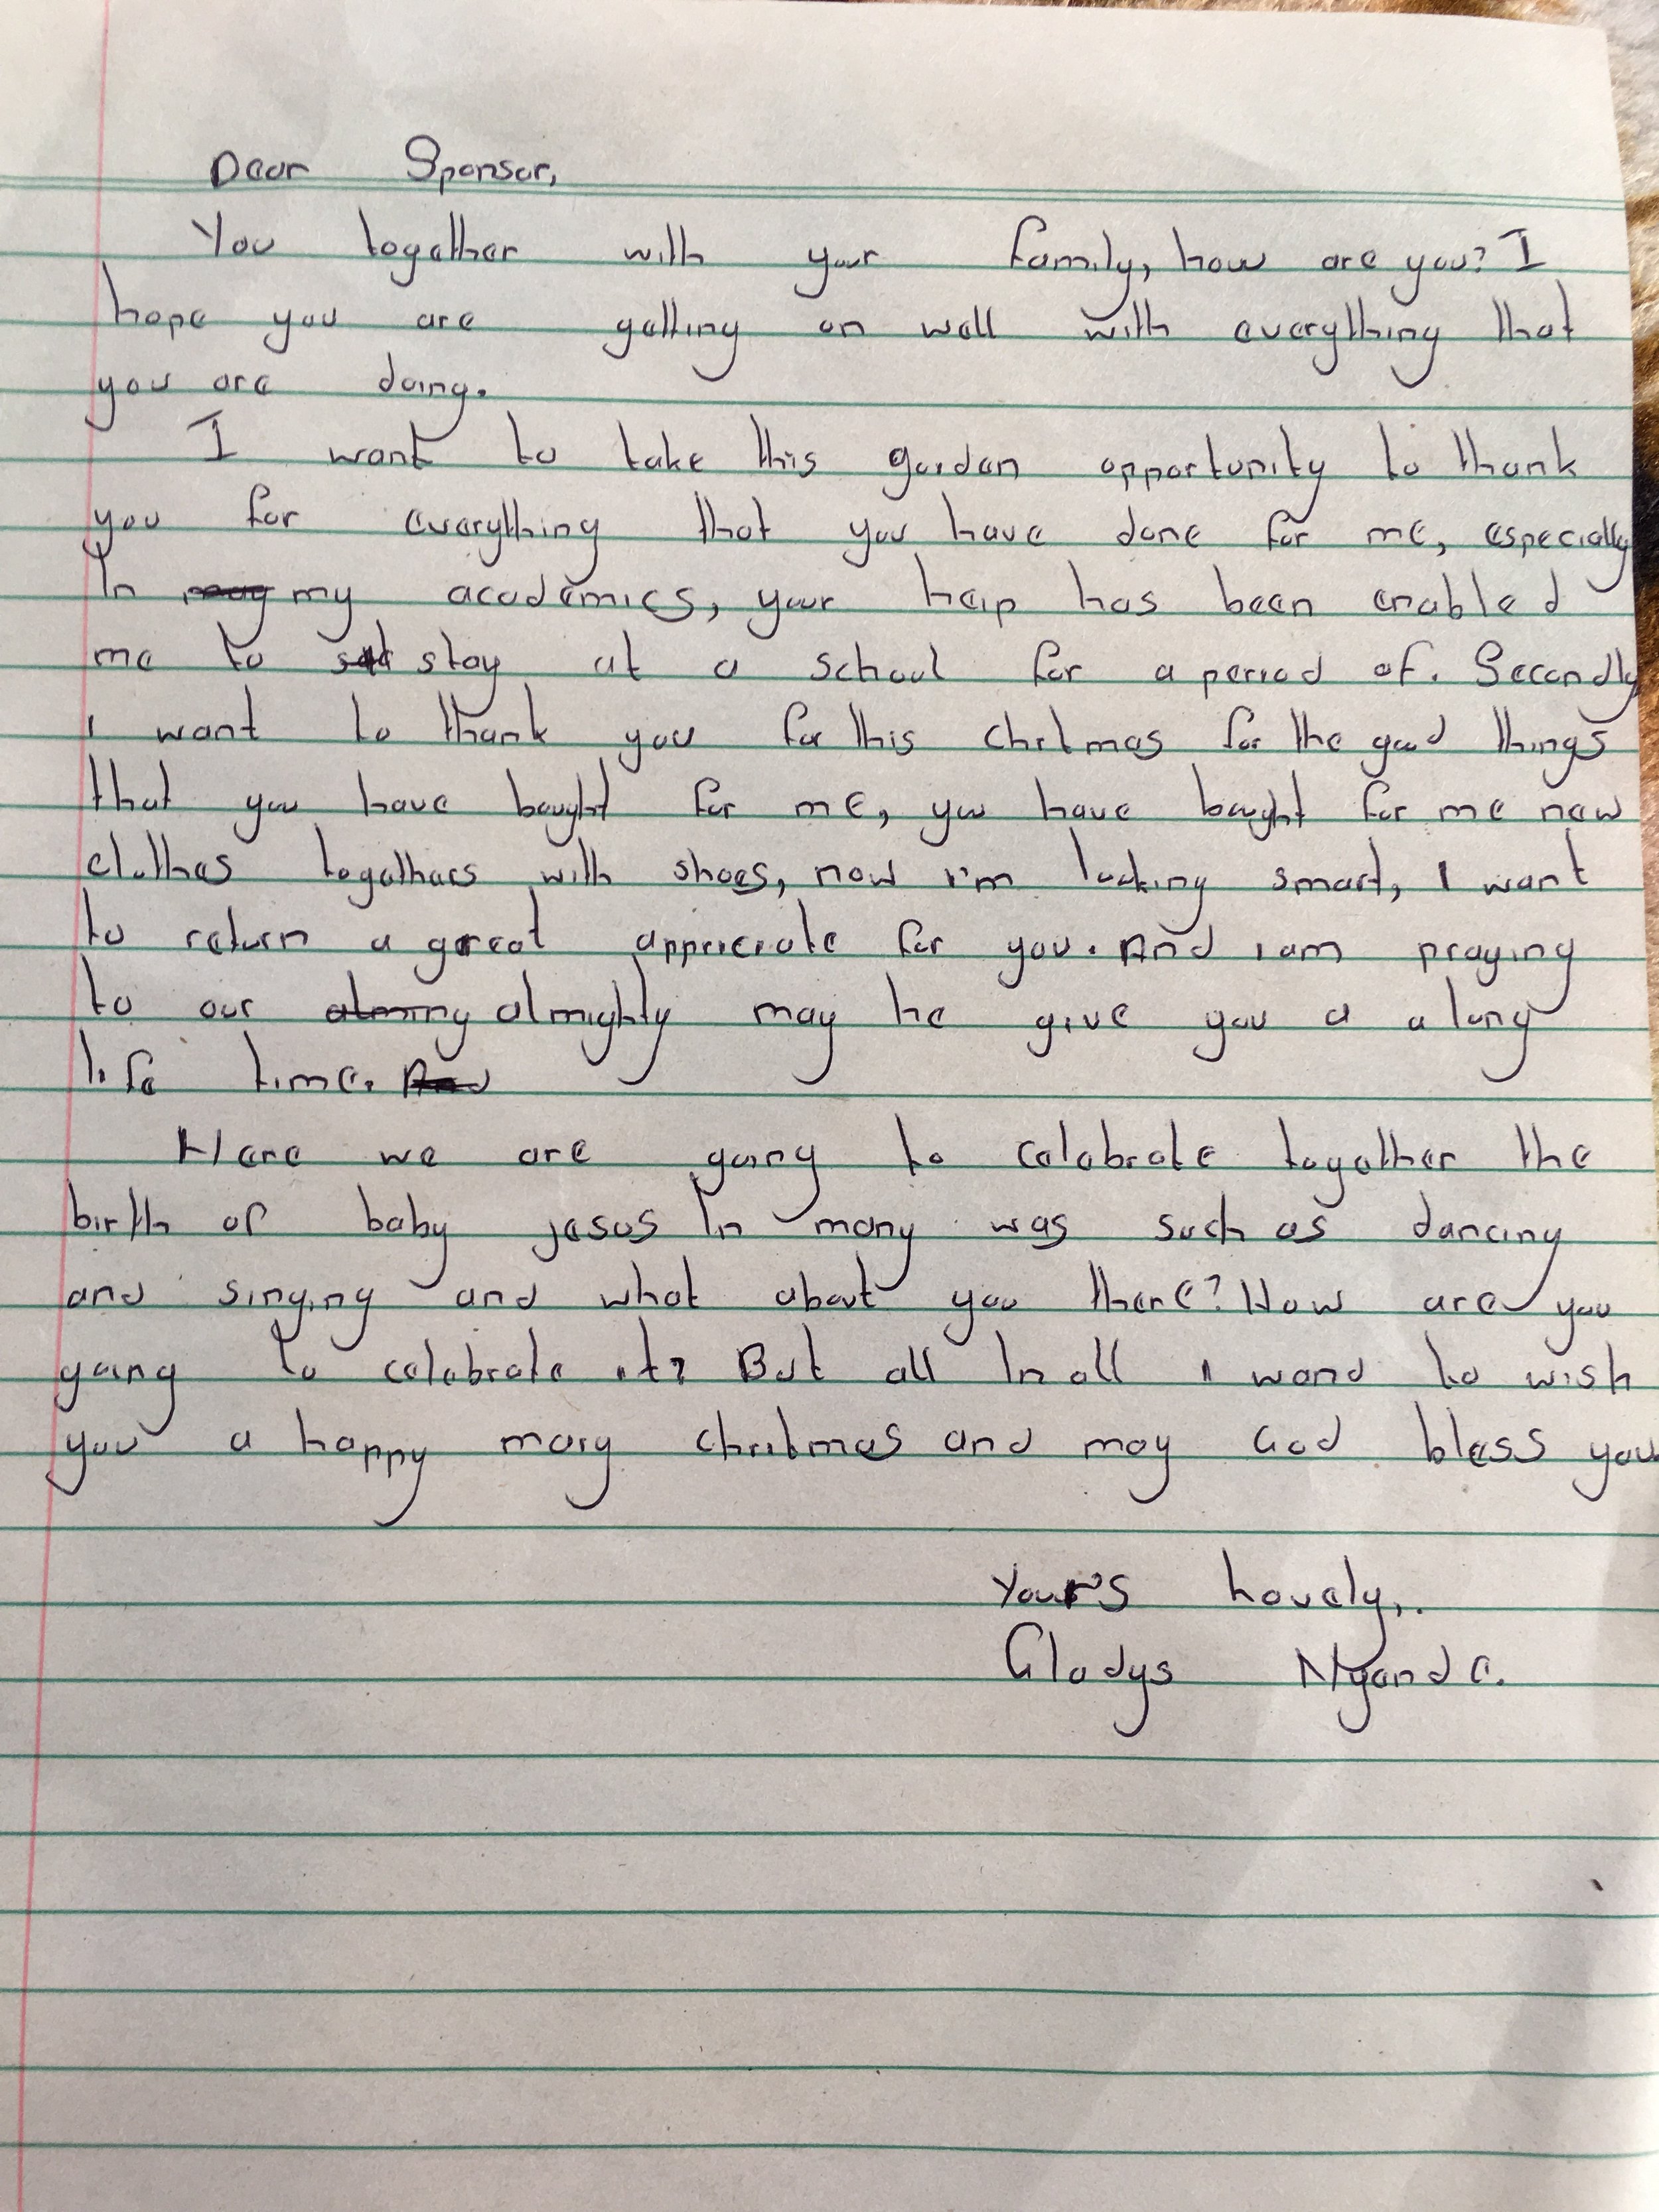 Dear Sponsor,
You together with your family, how are you? I
hope you are getting on well with everything that
you are doing.
I want to take this gorden opportunity to thank
you for everything that you have done for me, especially
In my academics, your help has been enabled
me to stay at a school for a period of. Secondly
I want to thank you for this chritmas for the good things
that you have bought for me, you have bought for me new
clothes togethers with shoes, now I'm looking smart, I want
to return a great appriciate for you. And I am praying
to our almighty may he give you a a long
life time.
Here we are going to celebrate together the
birth of baby jesus In many was such as dancing
and singing and what about you there? How are you
going to celebrate it? But all In all I wand to wish
you a happy mary chritmas and may God bless you
Yours lovely,.
Gladys Nyande.